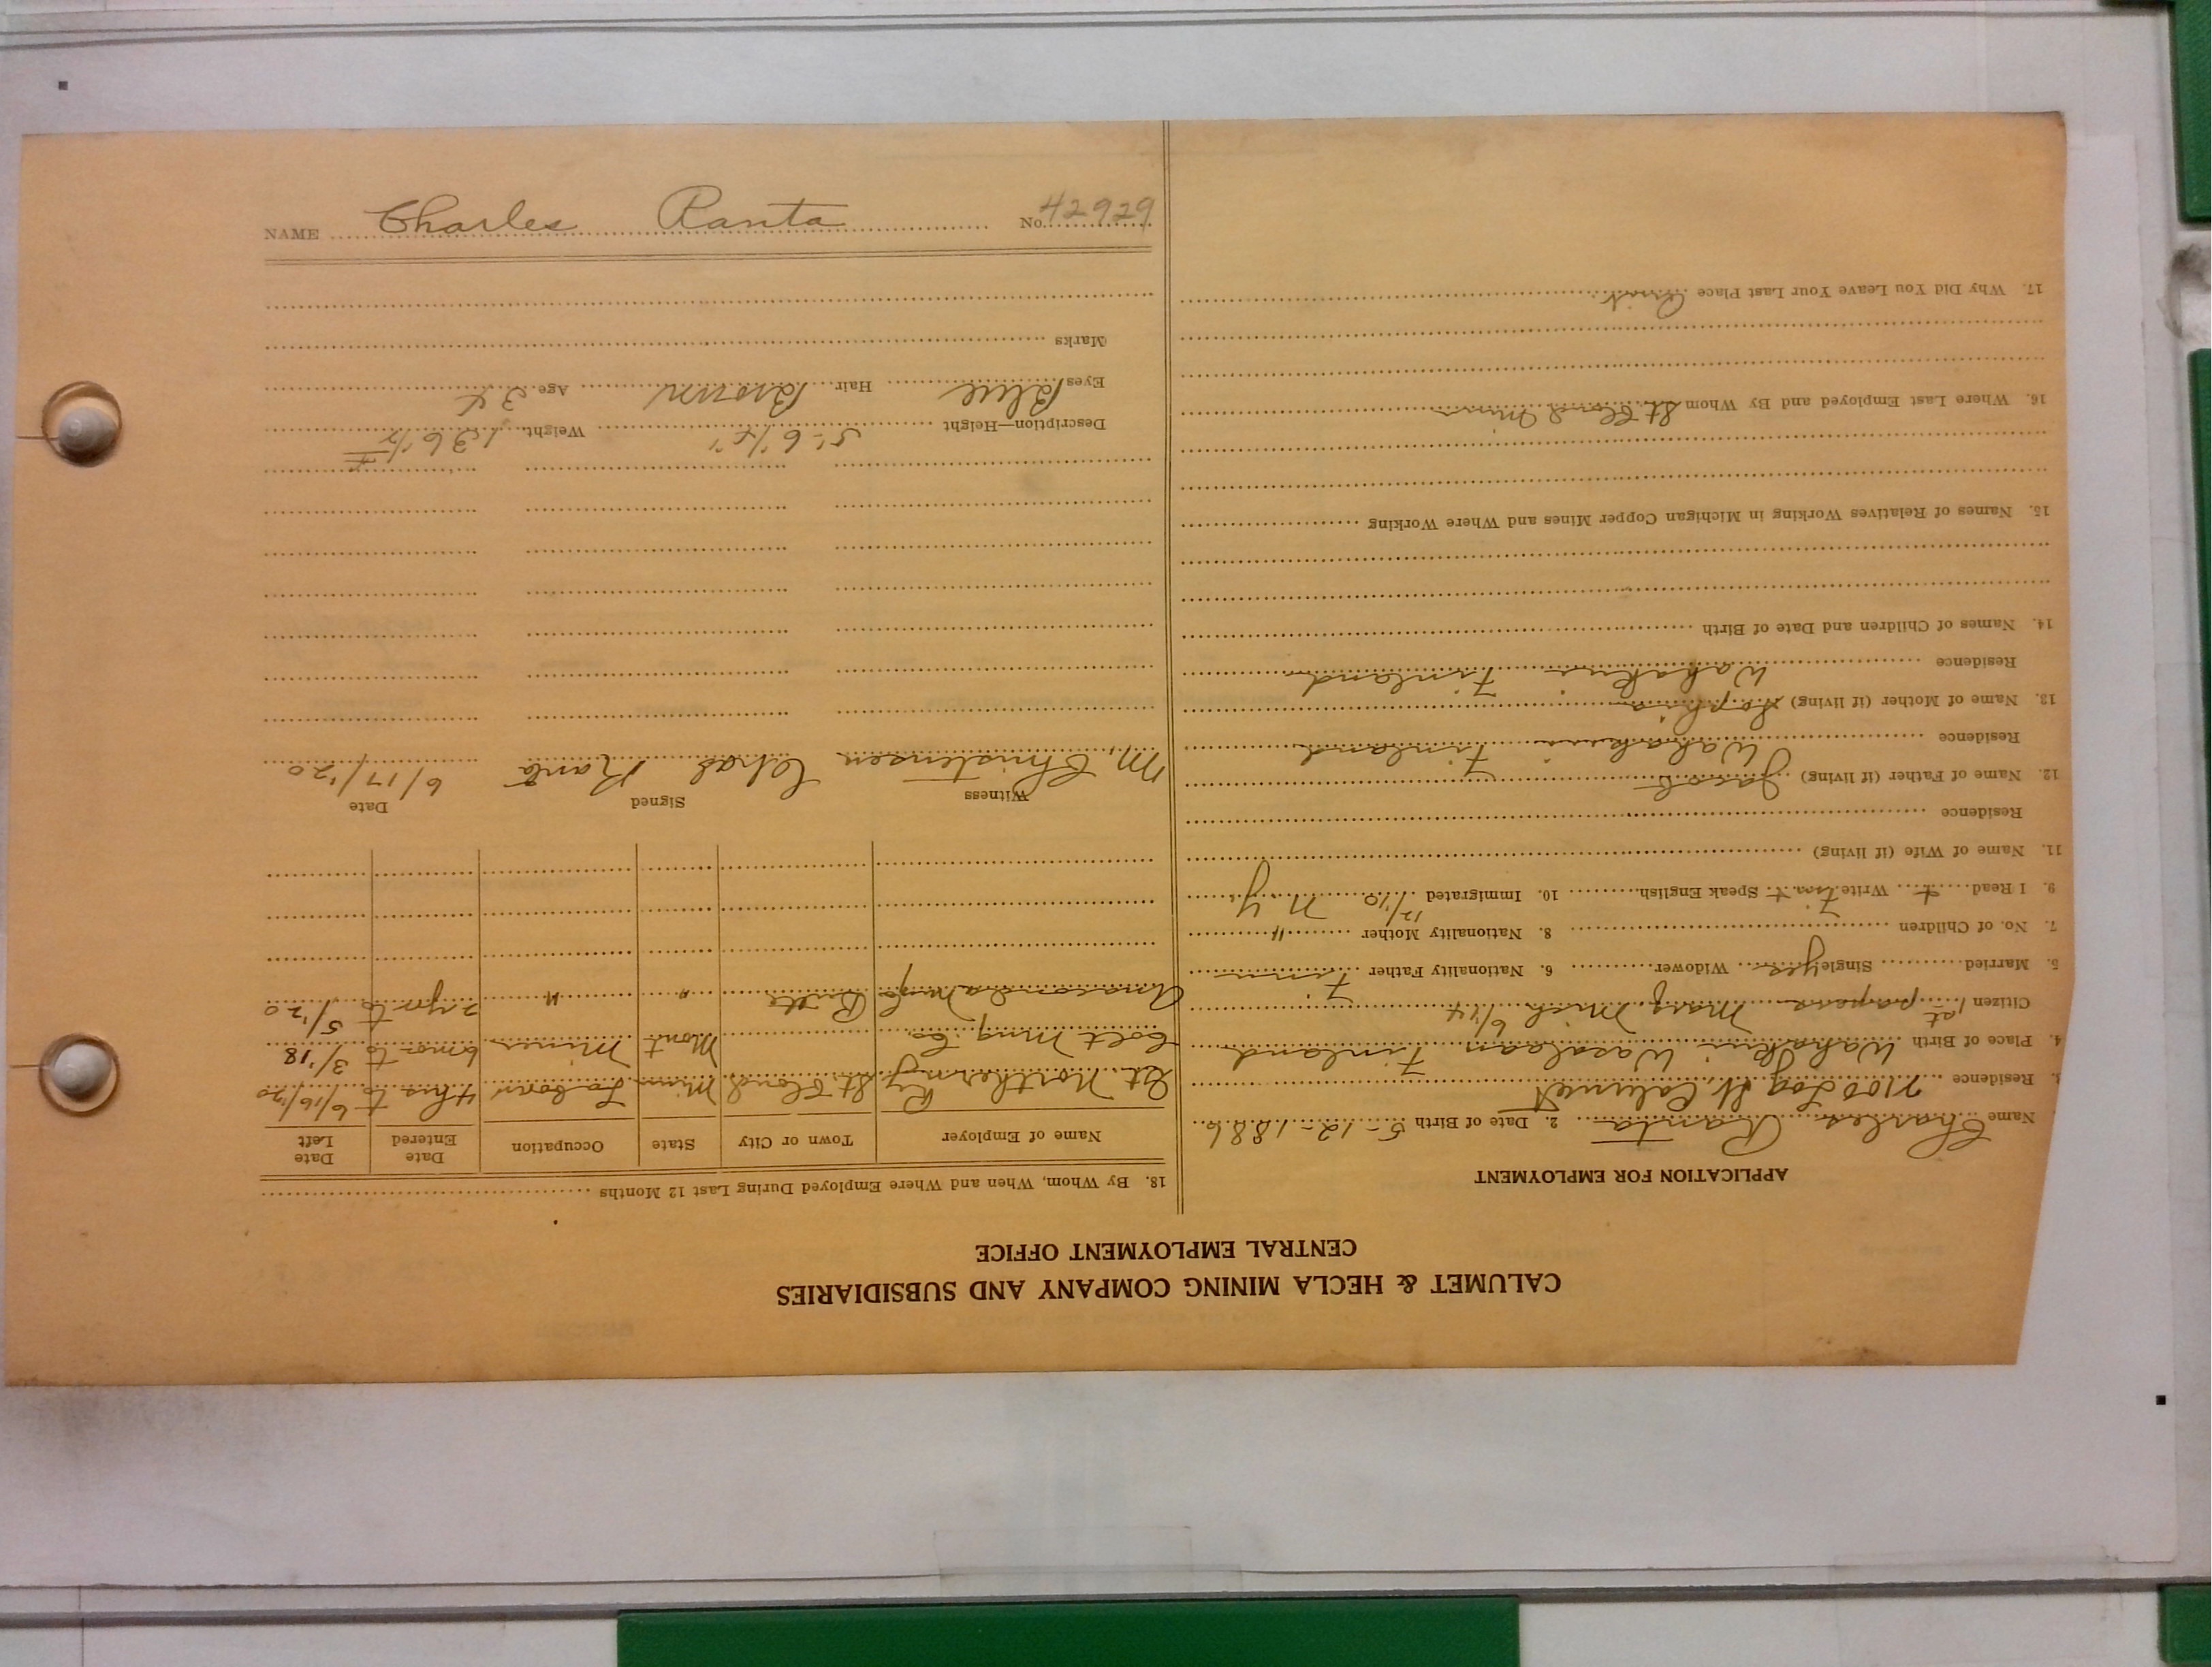 CALUMET & HECLA MINING COMPANY AND SUBSIDIARIES
CENTRAL EMPLOYMENT OFFICE
APPLICATION FOR EMPLOYMENT
Name Charles Ranta 2. Date of Birth 5-12-1886
3. Residence 2100 Log St. Calumet
4. Place of Birth Wahakui Wasalaan Finland
Citizen 1st papers Marq. Mich 6/14
5. Married Single yes Widower 6. Nationality Father Finn
7. No. of Children 8. Nationality Mother "
9. I Read + Write Finn + Speak English 10. Immigrated 12/10 N.Y
11. Name of Wife (if living)
Residence
12. Name of Father (if living) Jacob
Residence Wahakui Finland
13. Name of Mother (if living) Sophia
Residence Wahakui Finland
14. Names of Children and Date of Birth
15. Names of Relatives Working in Michigan Copper Mines and Where Working
16. Where Last Employed and By Whom St. Cloud Minn
17. Why Did You Leave Your Last Place Quit
18. By Whom, When and Where Employed During Last 12 Months
Name of Employer Town or City State Occupation Date Entered Date Left
Gt. Northern Ry St. Cloud Minn Labour 4 hrs to 6/16/20
Colt Mng. Co. Mont Miner 6 mos to 3/'18
Anaconda Mng Co Butte " " 2 yrs to 5/'20
Witness Signed Date
M. Christensen Chas Ranta 6/17/'20
Description—Height 5' 6 1/2" Weight 136 1/2 #
Eyes Blue Hair Brown Age 34
Marks
NAME Charles Ranta No. 42929